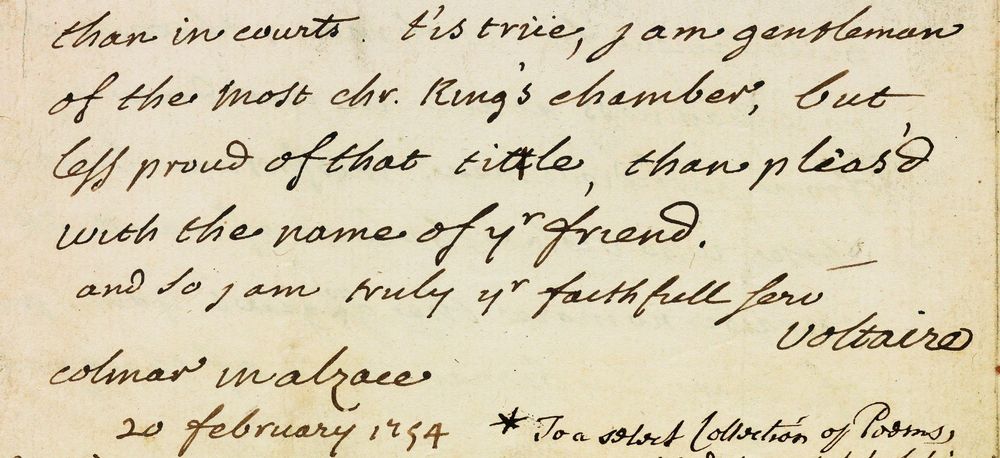 than in courts. t'is triie, j am gentleman
of the most chr. King's chamber, but
less proud of that tittle, than pleas'd
with the name of yr friend.
and so j am truly yr faithfull serv
Voltaire
colmar in alzace
20 february 1754 * To a select Collection of Poems,